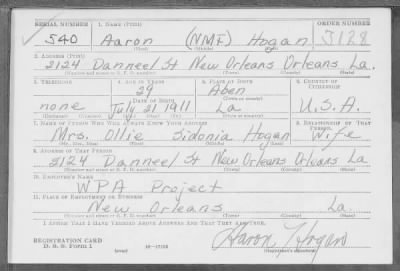 SERIAL NUMBER 1. NAME (Print) ORDER NUMBER
540 Aaron (NMF) Hogan 3128
(First) (Middle) (Last)
2. ADDRESS (Print)
2124 Danneel St New Orleans Orleans La.
(Number and street or R. F. D. number) (Town) (County) (State)
3. TELEPHONE 4. AGE IN YEARS 5. PLACE OF BIRTH 6. COUNTRY OF CITIZENSHIP
29 Aben
DATE OF BIRTH (Town or county)
none July 21 1911 La U.S.A.
(Mo.) (Day) (Yr.) (State or country)
7. NAME OF PERSON WHO WILL ALWAYS KNOW YOUR ADDRESS 8. RELATIONSHIP OF THAT PERSON
Mrs. Ollie Sidonia Hogan Wife
(Mr., Mrs., Miss) (First) (Middle) (Last)
9. ADDRESS OF THAT PERSON
2124 Danneel St New Orleans Orleans La
(Number and street or R. F. D. number) (Town) (County) (State)
10. EMPLOYER'S NAME
WPA Project
11. PLACE OF EMPLOYMENT OR BUSINESS
New Orleans La.
(Number and street or R. F. D. number) (Town) (County) (State)
I AFFIRM THAT I HAVE VERIFIED ABOVE ANSWERS AND THAT THEY ARE TRUE.
REGISTRATION CARD
D. S. S. Form 1 (over) 16-17105 Aaron Hogan
(Registrant's signature)